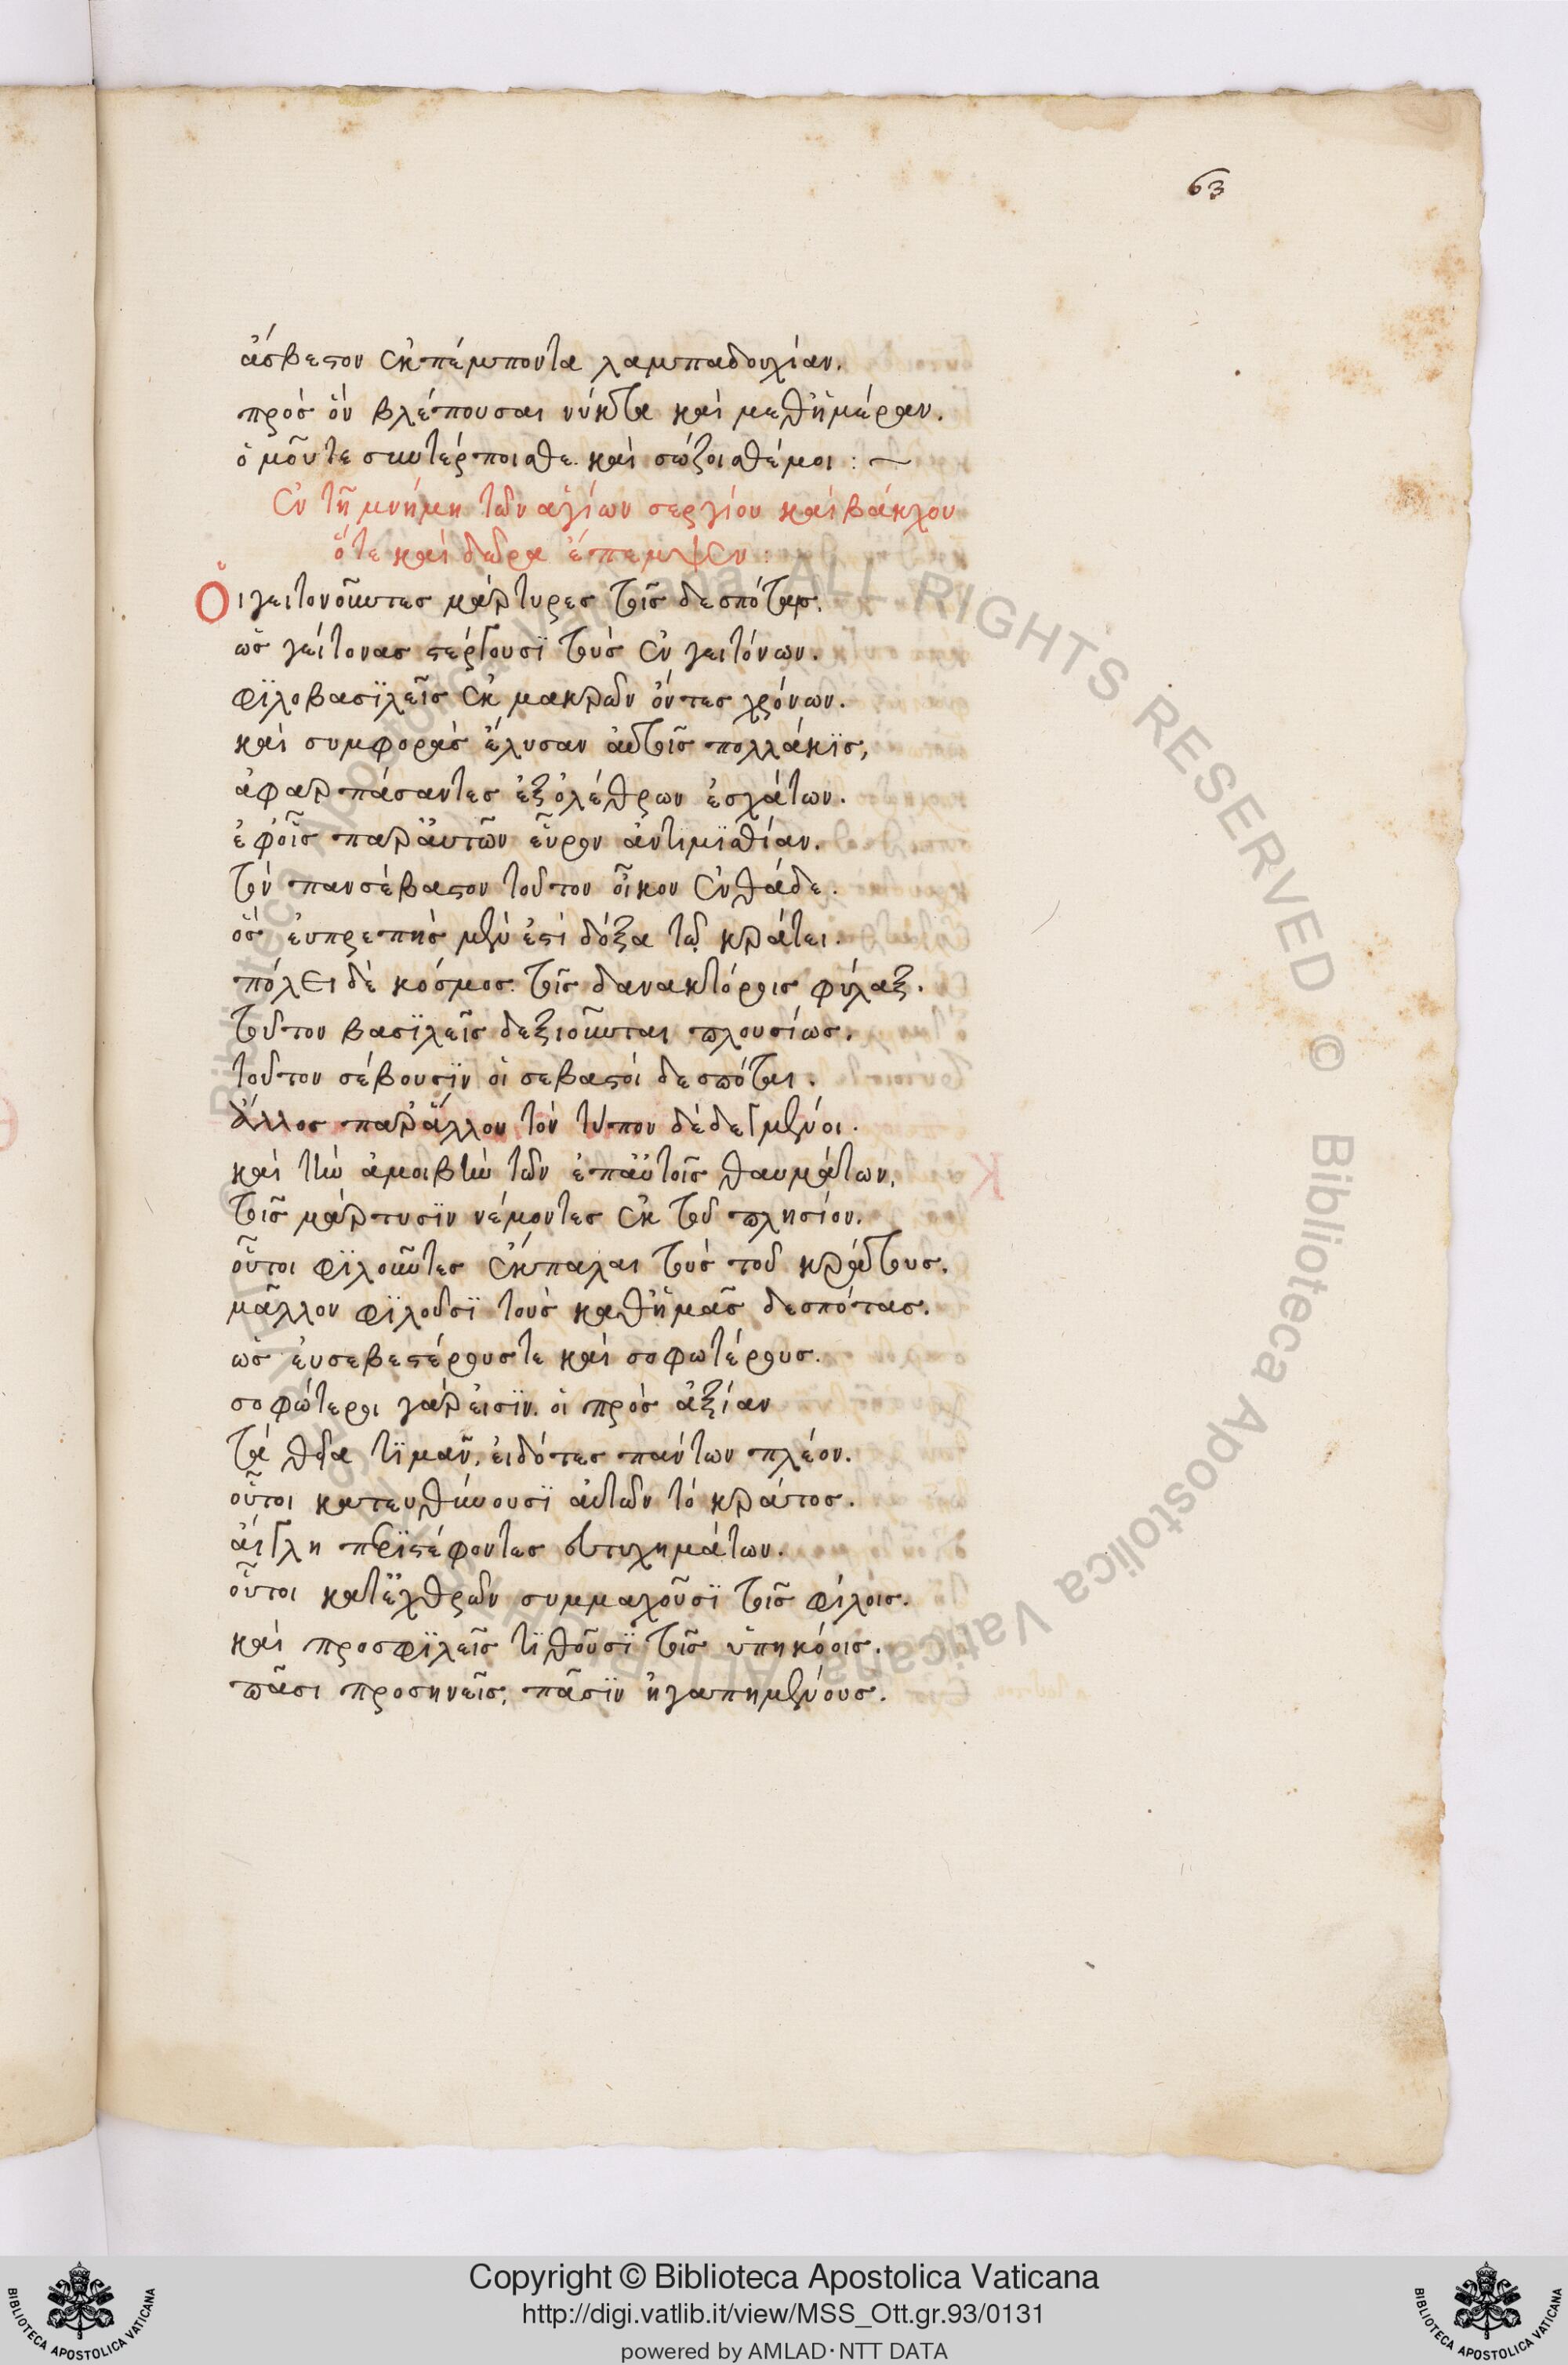 63
ἄσβεστον ἐκπέμποντα λαμπαδουχίαν.
πρὸς ὃν βλέπουσαι νύκτα καὶ μεθἡμέραν.
ὁμοῦ τε συντέρποισθε. καὶ σώζοισθέ μοι : ~
ἐν τῇ μνήμῃ τῶν ἁγίων σεργίου καὶ βάκχου
ὅτε καὶ δῶρα ἔπεμψεν :
Οἱ γειτονοῦντες μάρτυρες τοῖς δεσπόταις.
ὡς γείτονας στέργουσϊ τοὺς ἐν γειτόνων.
φϊλοβασϊλεῖς ἐκ μακρῶν ὄντες χρόνων.
καὶ συμφορὰς ἔλυσαν αὐτοῖς πολλάκϊς,
ἀφαρπάσαντες ἐξ ὀλέθρων ἐσχάτων.
ἐφοἷς παρἀυτῶν εὗρον ἀντιμϊσθίαν.
τὸν πανσέβαστον τοῦτον οἶκον ἐνθάδε.
ὃς ἐυπρεπὴς μέν ἐστι δόξα τῷ κράτει.
πόλει δὲ κόσμος. τοῖς δανακτόροις φύλαξ.
τοῦτον βασϊλεῖς δεξιοῦνται πλουσίως.
τοῦτον σέβουσϊν οἱ σεβαστοὶ δεσπόται.
ἄλλος παρἄλλου τὸν τύπον δεδεγμένοι.
καὶ τὴν ἀμοιβὴν τῶν ἐπἀυτοῖς θαυμάτων,
τοῖς μάρτυσϊν νέμοντες ἐκ τοῦ πλησίον.
οὗτοι φϊλοῦντες ἔκπαλαι τοὺς τοῦ κράτους.
μᾶλλον φϊλοῦσϊ τοὺς καθἡμᾶς δεσπότας.
ὡς ἐυσεβεστέρους τε καὶ σοφωτέρους.
σοφώτεροι γὰρ ἐισϊν. οἱ πρὸς ἀξίαν
τὰ θεῖα τϊμᾶν, ἐιδότες πάντων πλέον.
οὗτοι κατευθύνουσϊ αὐτῶν τὸ κράτος.
ἄιγλη περϊστέφοντες ἐυτυχημάτων.
οὗτοι κατἐχθρῶν συμμαχοῦσϊ τοῖς φίλοις.
καὶ προσφϊλεῖς τϊθοῦσϊ τοῖς ὑπηκόοις.
πᾶσι προσηνεῖς, πᾶσϊν ἠγαπημένους.
Copyright © Biblioteca Apostolica Vaticana
http://digi.vatlib.it/view/MSS_Ott.gr.93/0131
powered by AMLAD·NTT DATA